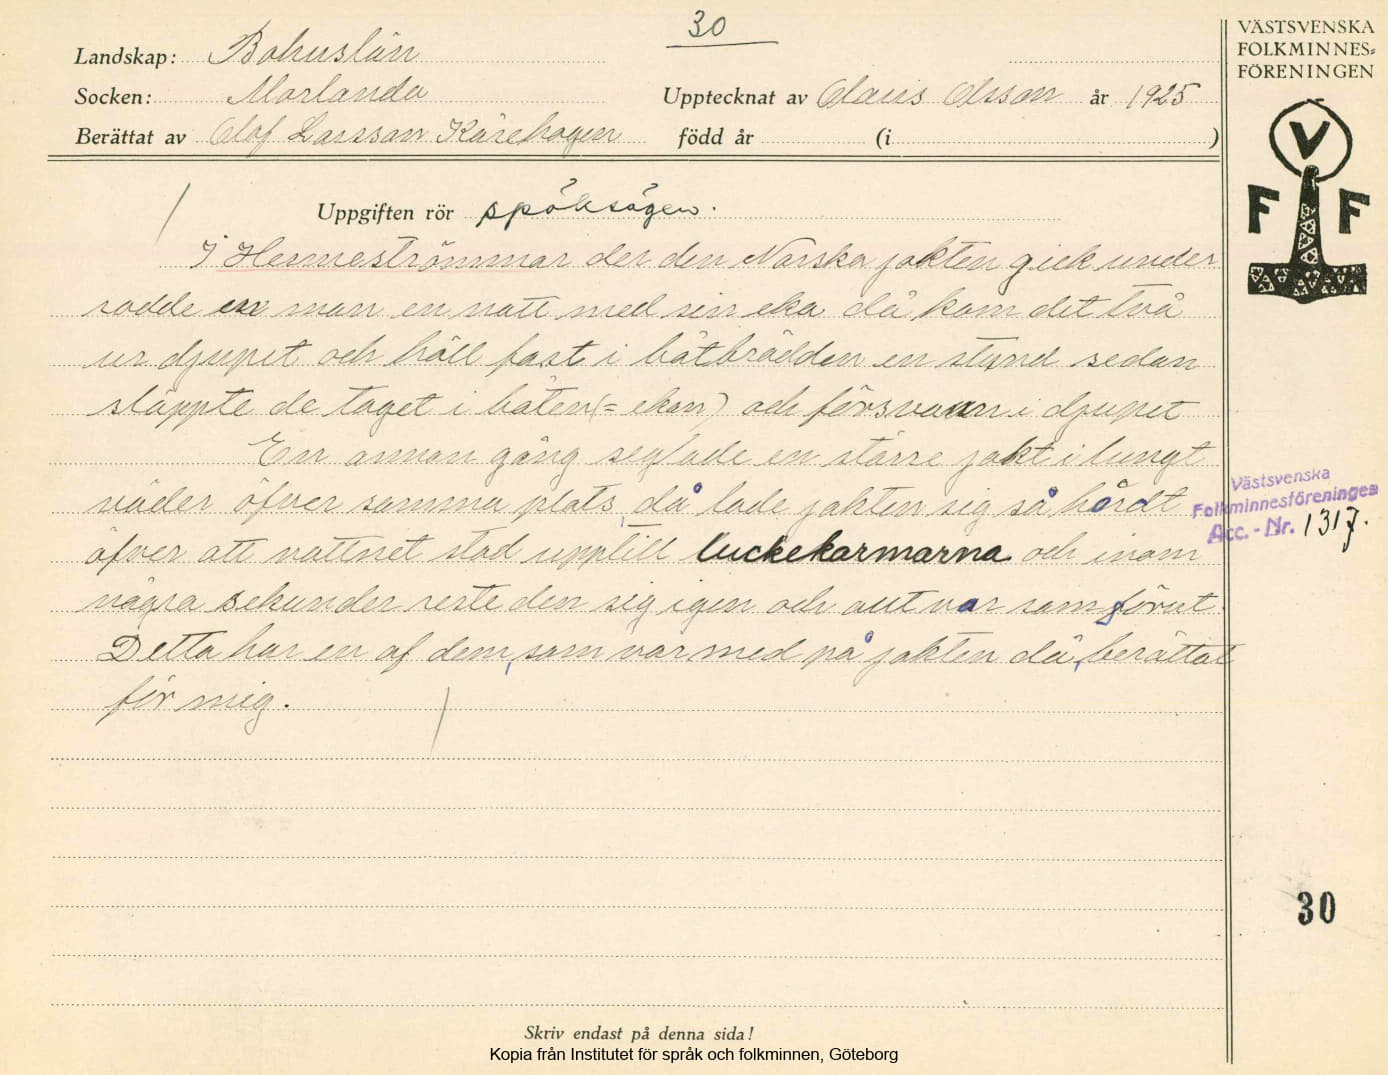 30
Landskap: Bohuslän
Socken: Morlanda
Upptecknat av Claus Olsson år 1925
Berättat av Olof Larsson Kårehogen född år (i )
VÄSTSVENSKA
FOLKMINNES=
FÖRENINGEN
V
F F
Uppgiften rör spöksägen.
I Hermeströmmar der den Norska jakten gick under
rodde en man en natt med sin eka då kom det två
ur djupet och höll fast i båtbrädden en stund sedan
släppte de taget i båten (= ekan) och försvann i djupet
En annan gång seglade en större jakt i lungt
väder öfver samma plats, då lade jakten sig så hårdt
öfver att vattnet stod upptill luckekarmarna och inom
några sekunder reste den sig igen och allt var som förut.
Detta har en af dem, som var med på jakten då, berättat
för mig.
Västsvenska
Folkminnesföreningen
Acc. - Nr. 1317.
30
Skriv endast på denna sida!
Kopia från Institutet för språk och folkminnen, Göteborg